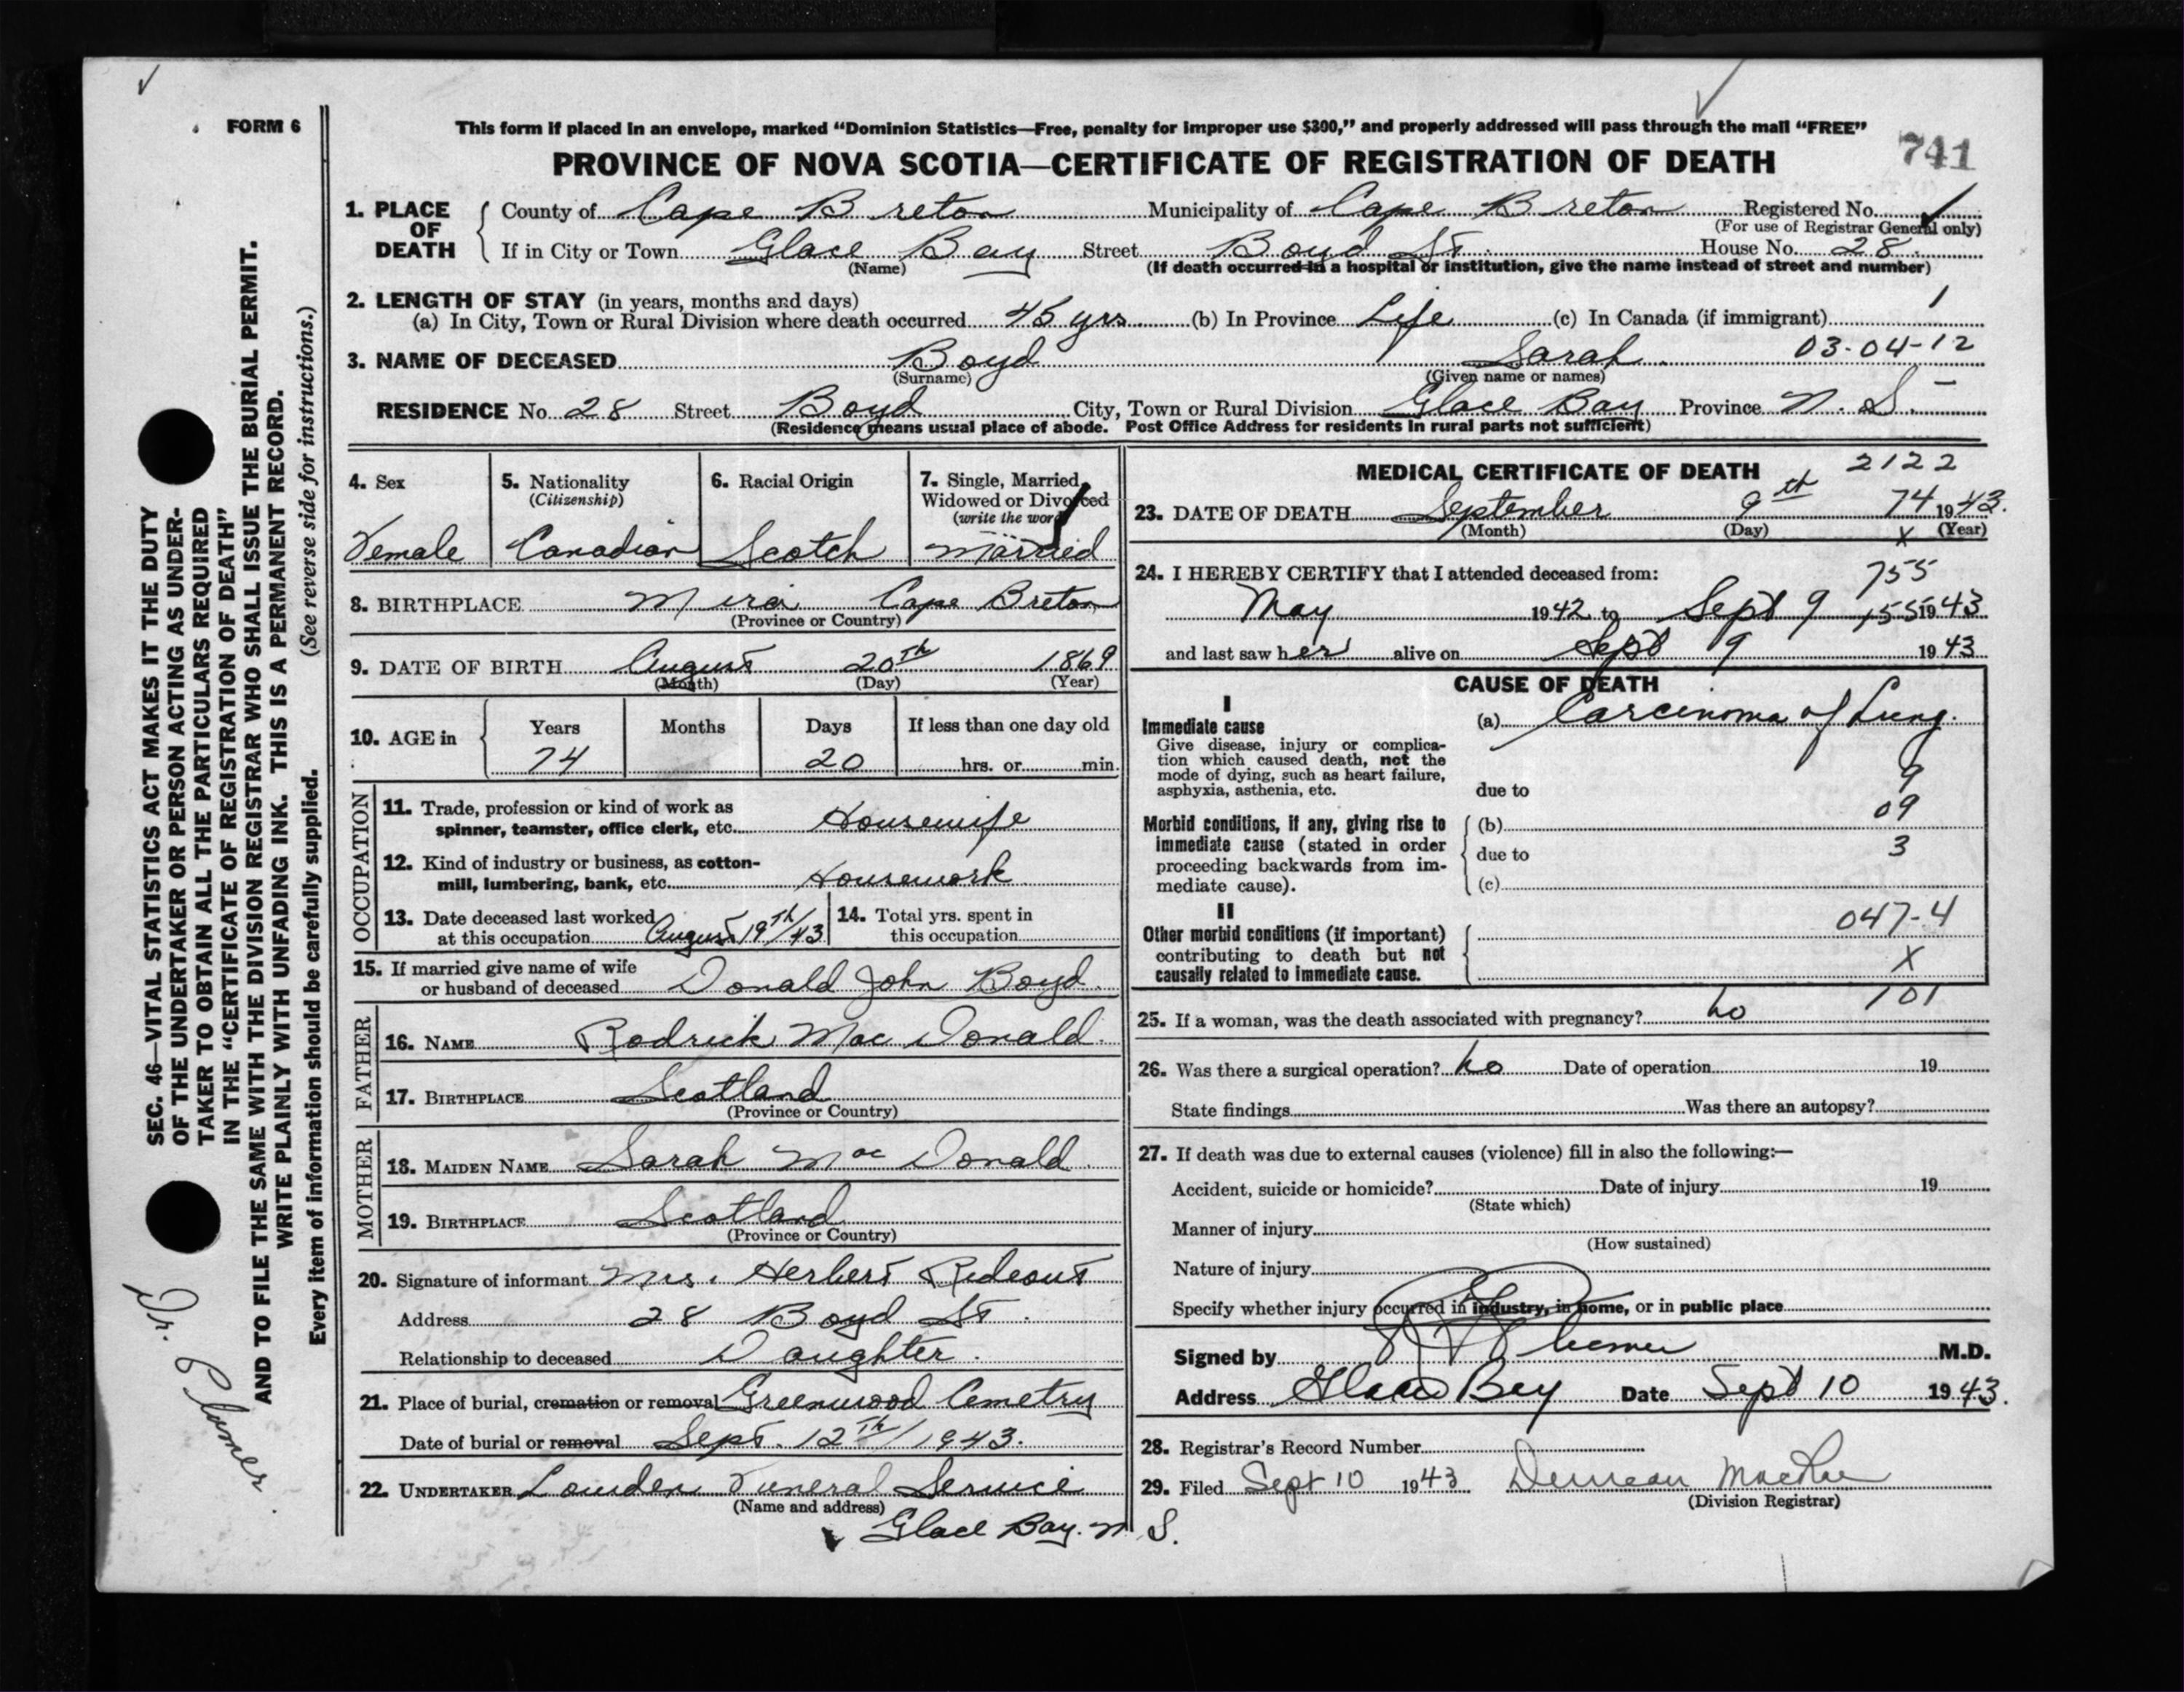 FORM 6
This form if placed in an envelope, marked "Dominion Statistics—Free, penalty for improper use $300," and properly addressed will pass through the mail "FREE"
PROVINCE OF NOVA SCOTIA—CERTIFICATE OF REGISTRATION OF DEATH
741
1. PLACE OF DEATH
County of Cape Breton Municipality of Cape Breton Registered No.
(For use of Registrar General only)
If in City or Town Glace Bay Street Boyd St. House No. 28
(Name) (If death occurred in a hospital or institution, give the name instead of street and number)
2. LENGTH OF STAY (in years, months and days)
(a) In City, Town or Rural Division where death occurred 45 yrs (b) In Province Life (c) In Canada (if immigrant) 1
3. NAME OF DECEASED Boyd Sarah 03-04-12
(Surname) (Given name or names)
RESIDENCE No. 28 Street Boyd City, Town or Rural Division Glace Bay Province N. S.
(Residence means usual place of abode. Post Office Address for residents in rural parts not sufficient)
4. Sex
Female
5. Nationality
(Citizenship)
Canadian
6. Racial Origin
Scotch
7. Single, Married, Widowed or Divorced
(write the word)
Married
8. BIRTHPLACE Mira Cape Breton
(Province or Country)
9. DATE OF BIRTH August 20th 1869
(Month) (Day) (Year)
10. AGE in Years Months Days If less than one day old
74 20 hrs. or min.
OCCUPATION
11. Trade, profession or kind of work as
spinner, teamster, office clerk, etc. Housewife
12. Kind of industry or business, as cotton-
mill, lumbering, bank, etc. Housework
13. Date deceased last worked
at this occupation August 19th/43
14. Total yrs. spent in
this occupation
15. If married give name of wife
or husband of deceased Donald John Boyd.
FATHER
16. NAME Rodrick Mac Donald.
17. BIRTHPLACE Scotland
(Province or Country)
MOTHER
18. MAIDEN NAME Sarah Mac Donald.
19. BIRTHPLACE Scotland
(Province or Country)
20. Signature of informant Mrs. Herbert Rideout
Address 28 Boyd St.
Relationship to deceased Daughter.
21. Place of burial, cremation or removal Greenwood Cemetry
Date of burial or removal Sept. 12th/1943.
22. UNDERTAKER Louden Funeral Service
(Name and address)
Glace Bay. N S.
MEDICAL CERTIFICATE OF DEATH 2122
23. DATE OF DEATH September 9th 74 1943.
(Month) (Day) x (Year)
24. I HEREBY CERTIFY that I attended deceased from: 755
May 1942 to Sept 9 155 1943
and last saw her alive on Sept 9 1943
CAUSE OF DEATH
I
Immediate cause
Give disease, injury or complica-
tion which caused death, not the
mode of dying, such as heart failure,
asphyxia, asthenia, etc.
(a) Carcinoma of Lung.
9
due to
09
Morbid conditions, if any, giving rise to
immediate cause (stated in order
proceeding backwards from im-
mediate cause).
(b)
due to 3
(c)
II
Other morbid conditions (if important)
contributing to death but not
causally related to immediate cause.
047-4
X
101
25. If a woman, was the death associated with pregnancy? no
26. Was there a surgical operation? no Date of operation 19
State findings Was there an autopsy?
27. If death was due to external causes (violence) fill in also the following:—
Accident, suicide or homicide? Date of injury 19
(State which)
Manner of injury
(How sustained)
Nature of injury
Specify whether injury occurred in industry, in home, or in public place
Signed by M.D.
Address Glace Bay Date Sept 10 1943.
28. Registrar's Record Number
29. Filed Sept 10 1943 Duncan MacRae
(Division Registrar)
SEC. 46—VITAL STATISTICS ACT MAKES IT THE DUTY
OF THE UNDERTAKER OR PERSON ACTING AS UNDER-
TAKER TO OBTAIN ALL THE PARTICULARS REQUIRED
IN THE "CERTIFICATE OF REGISTRATION OF DEATH"
AND TO FILE THE SAME WITH THE DIVISION REGISTRAR WHO SHALL ISSUE THE BURIAL PERMIT.
WRITE PLAINLY WITH UNFADING INK. THIS IS A PERMANENT RECORD.
Every item of information should be carefully supplied. (See reverse side for instructions.)
Dr.